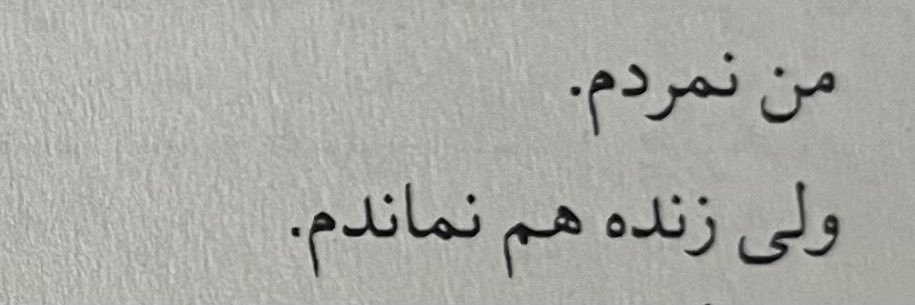 من نمردم.
ولی زنده هم نماندم.